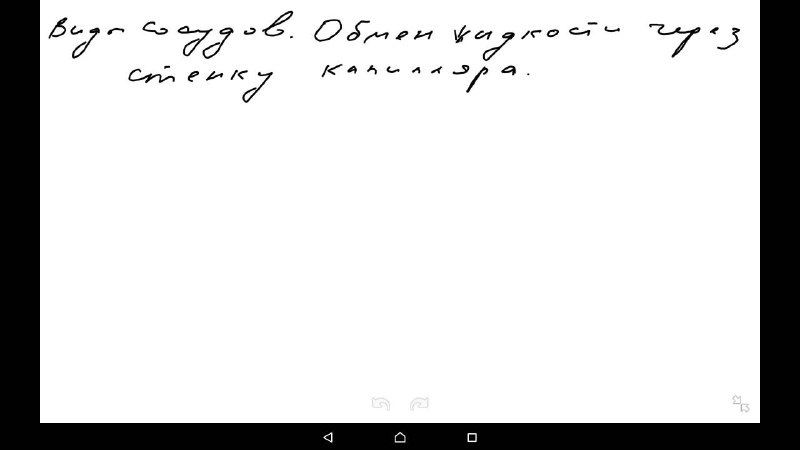 Виды сосудов. Обмен жидкости через
стенку капилляра.